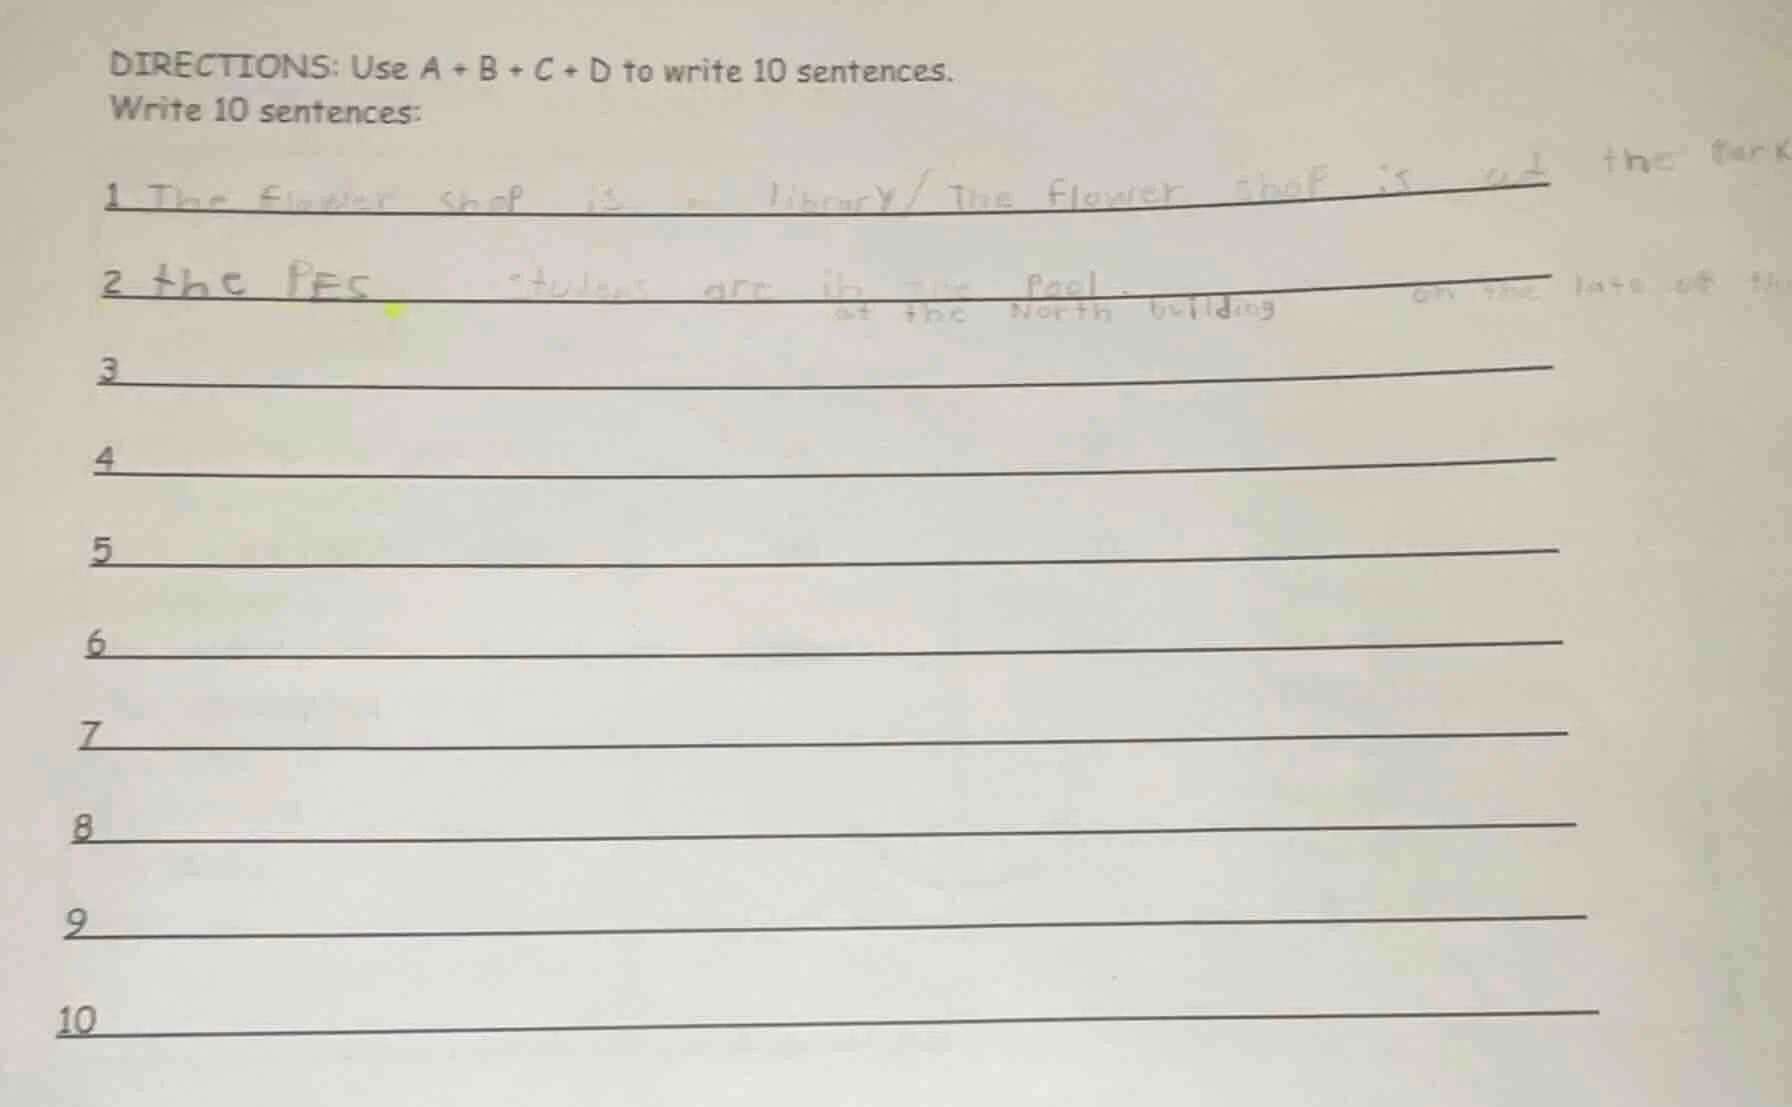 DIRECTIONS: Use A + B + C + D to write 10 sentences.
Write 10 sentences:
1 The flower shop is library/ The flower shop is at the Park
2 the PES students are in the Pool. on the late of
at the North building
3
4
5
6
7
8
9
10